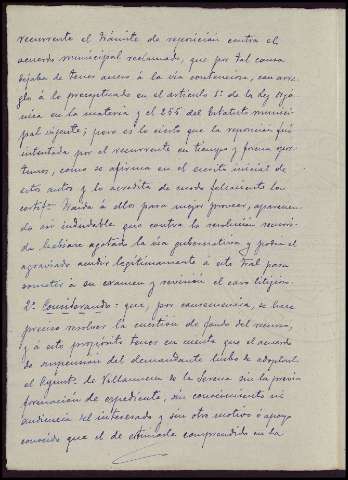 recurrente el trámite de reposición contra el
acuerdo municipal reclamado, que por tal causa
dejaba de tener acceso á la vía contenciosa, con arre-
glo á lo preceptuado en el artículo 1º de la ley orgá-
nica en la materia y el 255 del Estatuto munici-
pal vigente; pero es lo cierto que la reposición fué
intentada por el recurrente en tiempo y forma opor-
tunos, como se afirma en el escrito inicial de
estos autos y lo acredita de modo fehaciente la
certifón traída á ellos para mejor proveer, aparecien-
do ser indudable que contra la resolución recurri-
da hubiese agotado la vía gubernativa y podía el
agraviado acudir legítimamente á este Tral para
someter á su examen y revisión el caso litigioso.
2º Considerando: que, por consecuencia, se hace
preciso resolver la cuestión de fondo del recurso,
y á este propósito tener en cuenta que el acuerdo
de suspensión del demandante hubo de adoptarlo
el Ayunto de Villanueva de la Serena sin la previa
formación de expediente, sin conocimiento ni
audiencia del interesado y sin otro motivo ó apoyo
conocido que el de estimarle comprendido en la